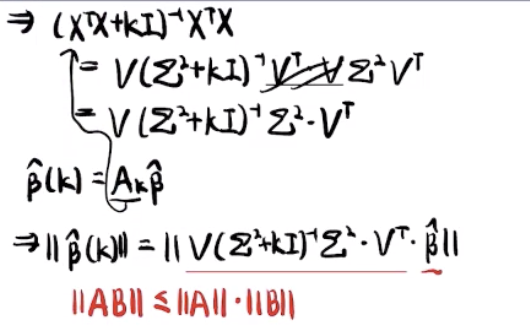 ⇒ (XᵀX+kI)⁻¹XᵀX
= V(Σ²+kI)⁻¹VᵀVΣ²Vᵀ
= V(Σ²+kI)⁻¹Σ²·Vᵀ
β̂(k) = Aₖβ̂
⇒ ||β̂(k)|| = ||V(Σ²+kI)⁻¹Σ²·Vᵀ·β̂||
||AB|| ≤ ||A||·||B||